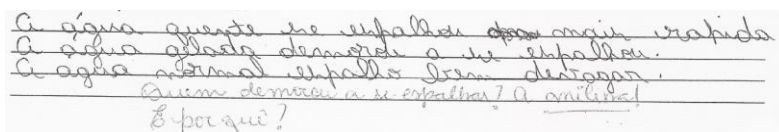 A água quente se espalhou mais rapida
A água gelada demorou a se espalhou.
A água normal espalho bem devagar.
Quem demorou a se espalhar? A anilina!
E por quê?